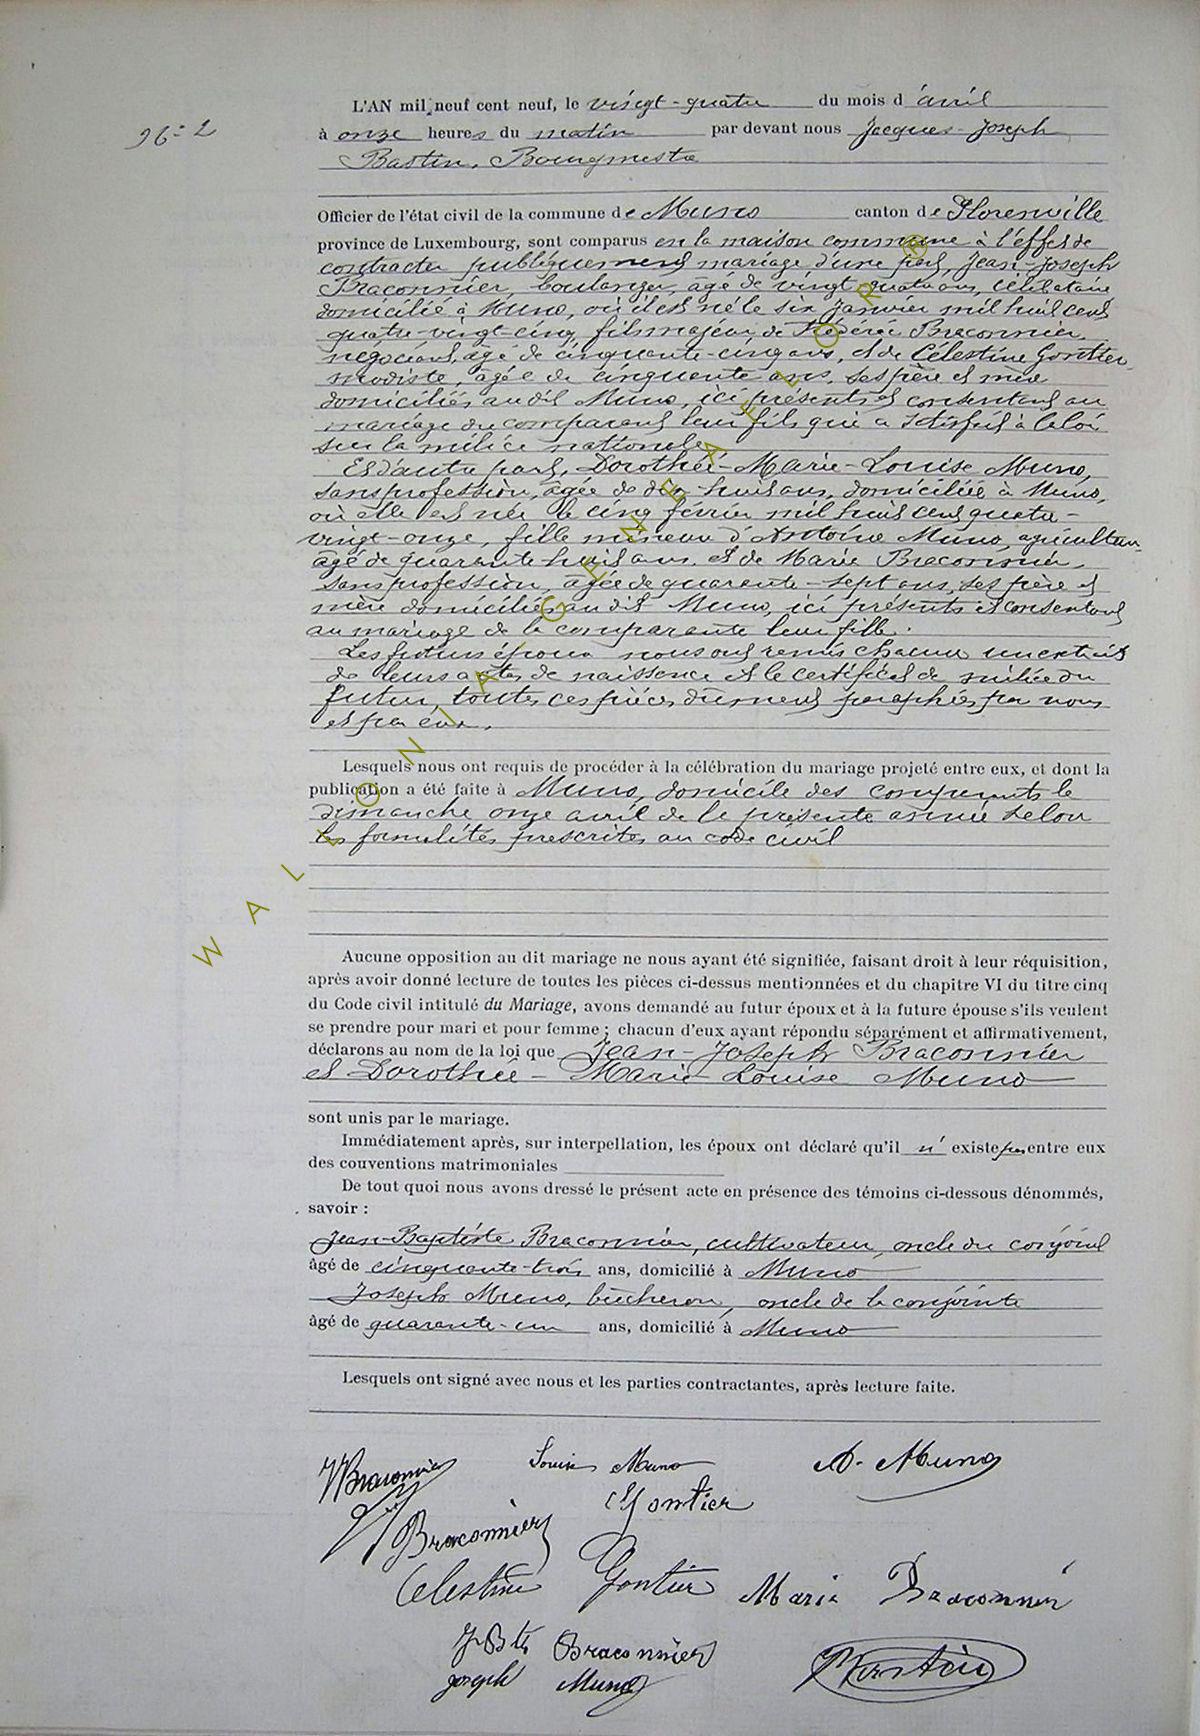 96=2
L'AN mil neuf cent neuf, le vingt-quatre du mois d'avril
à onze heures du matin par devant nous Jacques-Joseph
Bastin, Bourgmestre
Officier de l'état civil de la commune de Muno canton de Florenville
province de Luxembourg, sont comparus en la maison commune à l'effet de
contracter publiquement mariage d'une part, Jean-Joseph
Braconnier, boulanger, âgé de vingt quatre ans, célibataire
domicilié à Muno, où il est né le six Janvier mil huit cent
quatre-vingt-cinq, fils majeur de Frédéric Braconnier,
négociant, âgé de cinquante-cinq ans, et de Célestine Gontier
modiste, âgée de cinquante ans, ses père et mère
domiciliés au dit Muno, ici présents et consentant au
mariage du comparant leur fils qui a satisfait à la loi
sur la milice nationale
Et d'autre part, Dorothée-Marie-Louise Muno,
sans profession, âgée de dix huit ans, domiciliée à Muno,
où elle est née le cinq février mil huit cent quatre-
vingt-onze, fille mineure d'Antoine Muno, agriculteur,
âgé de quarante huit ans et de Marie Braconnier,
sans profession, âgée de quarante-sept ans, ses père et
mère domiciliés au dit Muno, ici présents et consentant
au mariage de la comparante leur fille.
Les futurs époux nous ont remis chacun un extrait
de leurs actes de naissance et le certificat de milice du
futur, toutes ces pièces dûment paraphées par nous
et par eux.
Lesquels nous ont requis de procéder à la célébration du mariage projeté entre eux, et dont la
publication a été faite à Muno, domicile des comparants le
dimanche onze avril de la présente année selon
les formalités prescrites au code civil
Aucune opposition au dit mariage ne nous ayant été signifiée, faisant droit à leur réquisition,
après avoir donné lecture de toutes les pièces ci-dessus mentionnées et du chapitre VI du titre cinq
du Code civil intitulé du Mariage, avons demandé au futur époux et à la future épouse s'ils veulent
se prendre pour mari et pour femme ; chacun d'eux ayant répondu séparément et affirmativement,
déclarons au nom de la loi que Jean-Joseph Braconnier
et Dorothée-Marie-Louise Muno
sont unis par le mariage.
Immédiatement après, sur interpellation, les époux ont déclaré qu'il n'existe pas entre eux
des conventions matrimoniales
De tout quoi nous avons dressé le présent acte en présence des témoins ci-dessous dénommés,
savoir :
Jean-Baptiste Braconnier, cultivateur, oncle du conjoint
âgé de cinquante-trois ans, domicilié à Muno
Joseph Muno, bûcheron, oncle de la conjointe
âgé de quarante-un ans, domicilié à Muno
Lesquels ont signé avec nous et les parties contractantes, après lecture faite.
JJBraconnier Louise Muno A. Muno
Gontier
Braconnier
Celestine Gontier Marie Braconnier
J Bte Braconnier
Joseph Muno Bastin
WALLONIA GENEALOR ®